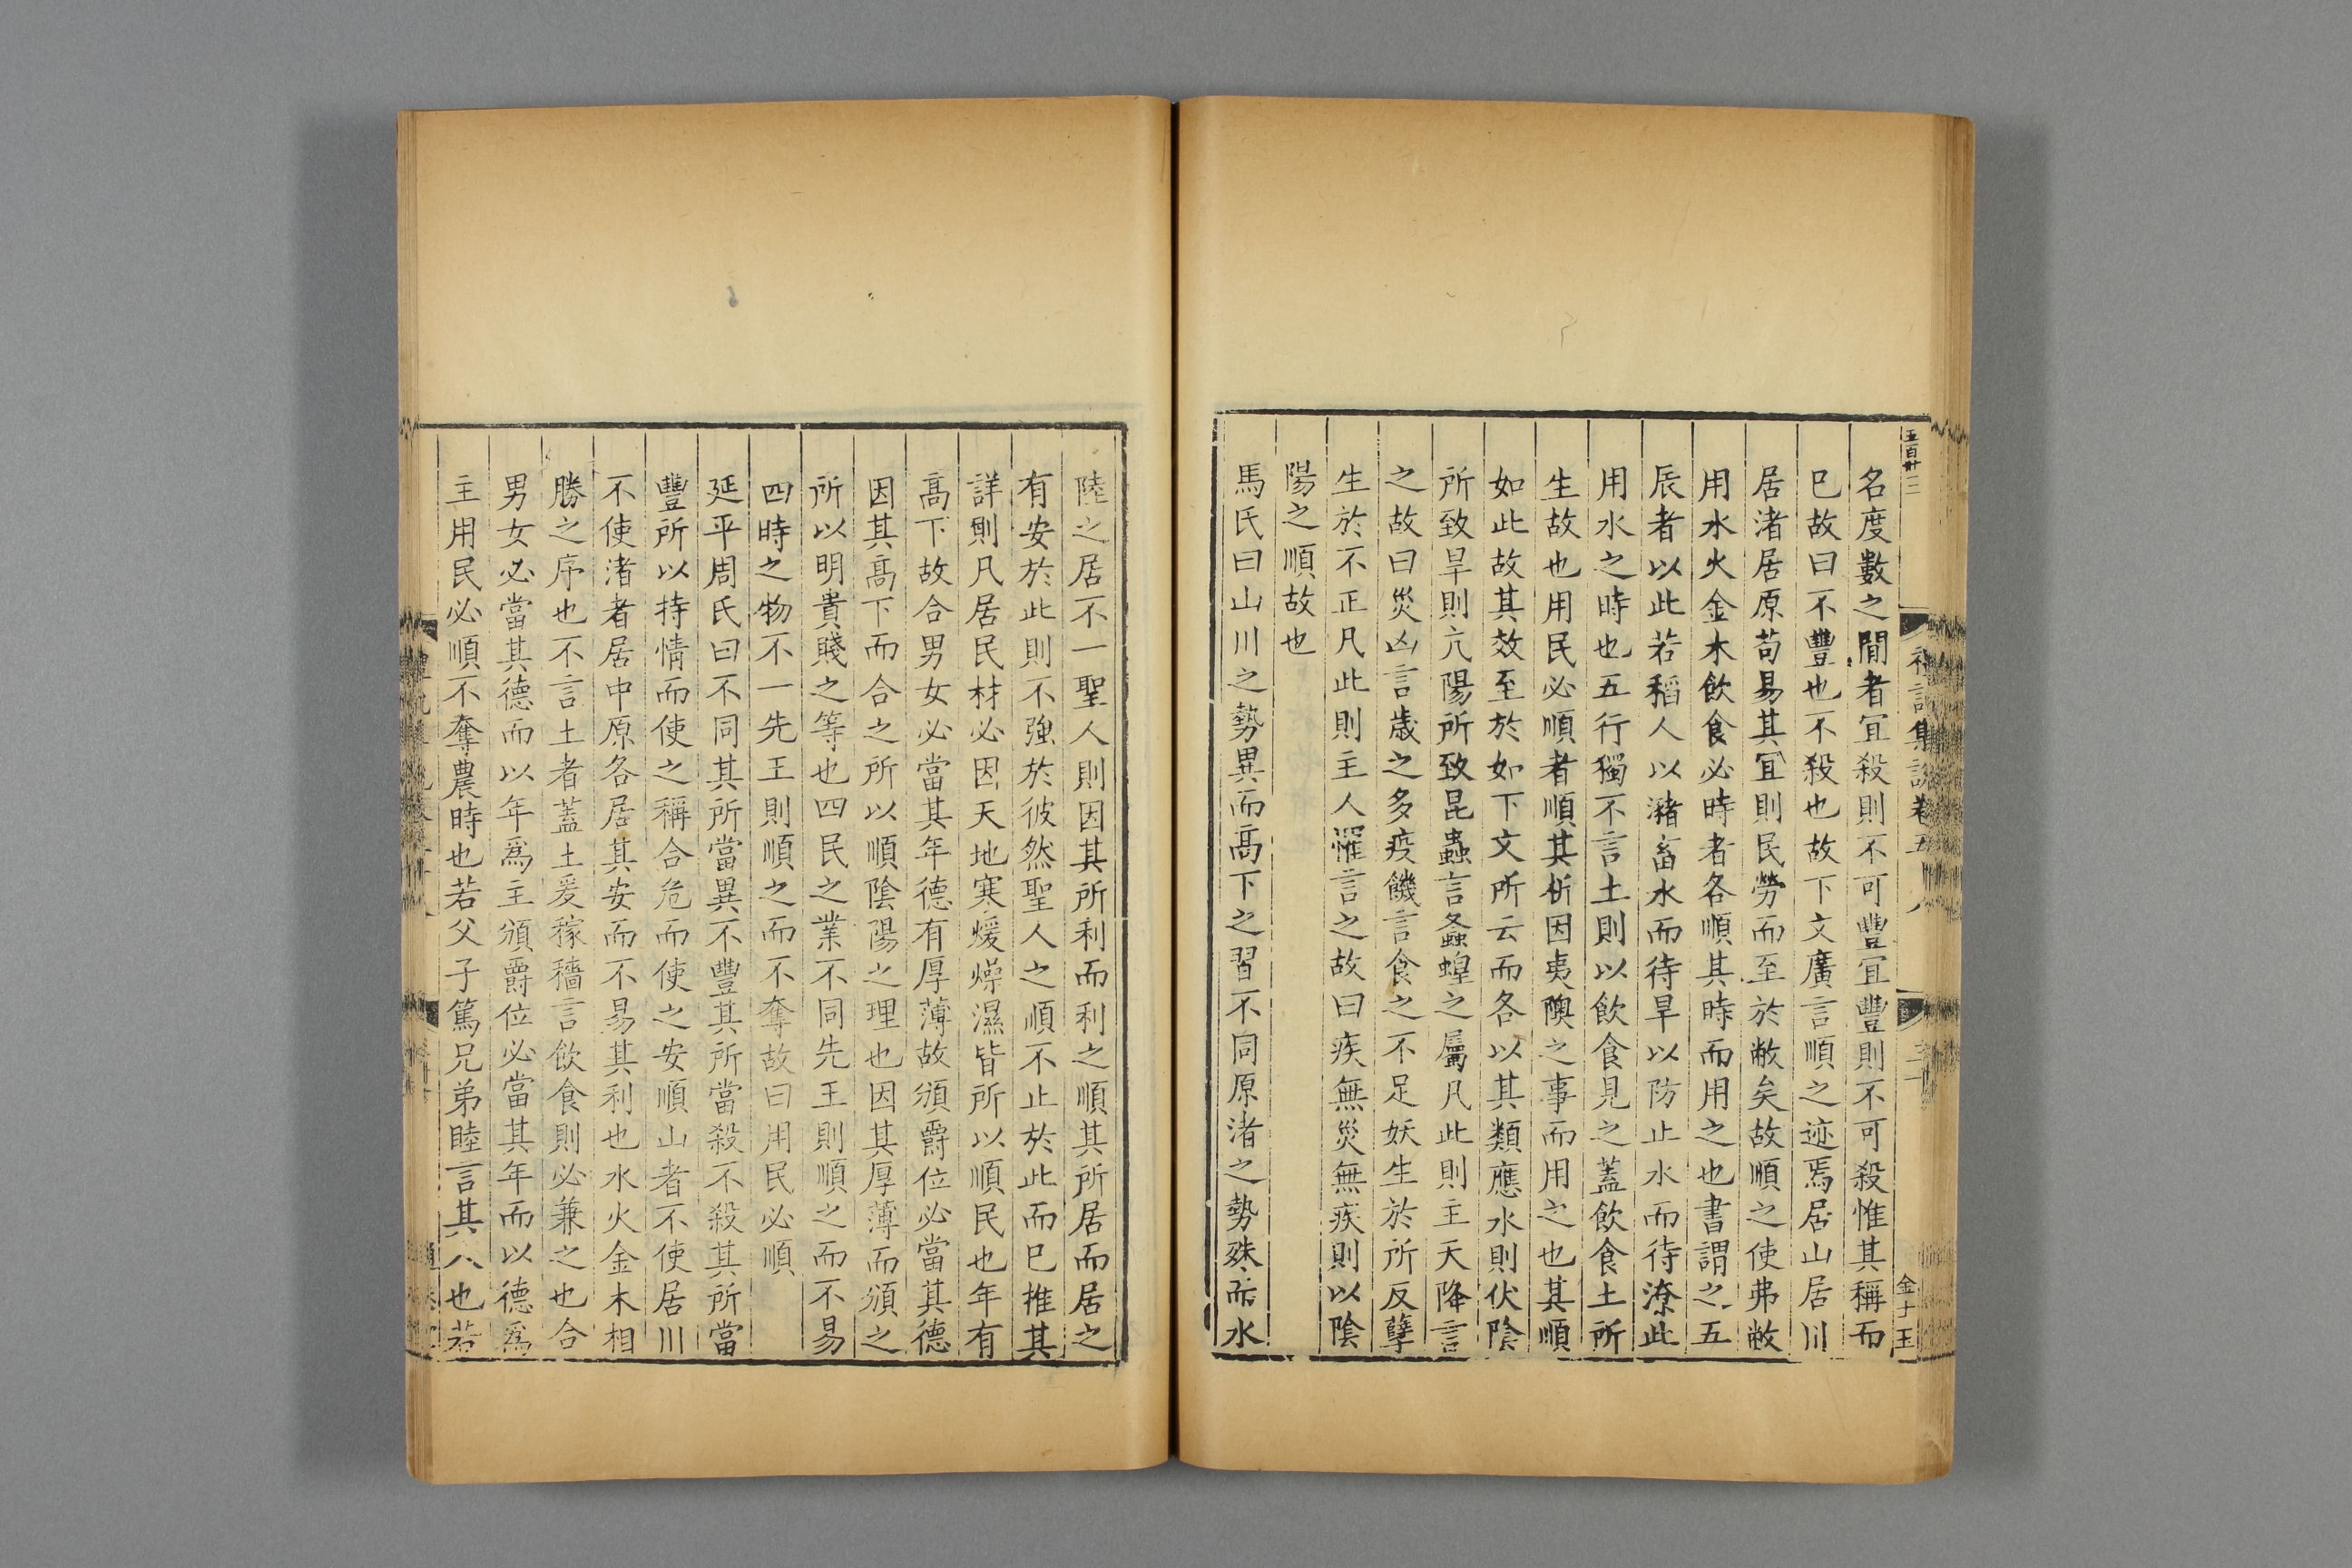 五百卅三
金十五
名度數之間者宜殺則不可豐宜豐則不可殺惟其稱而
巳故曰不豐也不殺也故下文廣言順之迹焉居山居川
居渚居原苟易其宜則民勞而至於敝矣故順之使弗敝
用水火金木飲食必時者各順其時而用之也書謂之五
辰者以此若稻人以瀦畜水而待旱以防止水而待潦此
用水之時也五行獨不言土則以飲食見之蓋飲食土所
生故也用民必順者順其析因夷隩之事而用之也其順
如此故其效至於如下文所云而各以其類應水則伏陰
所致旱則亢陽所致昆蟲言螽蝗之屬凡此則主天降言
之故曰災凶言歲之多疫饑言食之不足妖生於所反孽
生於不正凡此則主人罹言之故曰疾無災無疾則以陰
陽之順故也
馬氏曰山川之勢異而髙下之習不同原渚之勢殊而水
陸之居不一聖人則因其所利而利之順其所居而居之
有安於此則不強於彼然聖人之順不止於此而巳推其
詳則凡居民材必因天地寒煖燥濕皆所以順民也年有
髙下故合男女必當其年德有厚薄故頒爵位必當其德
因其髙下而合之所以順陰陽之理也因其厚薄而頒之
所以明貴賤之等也四民之業不同先王則順之而不易
四時之物不一先王則順之而不奪故曰用民必順
延平周氏曰不同其所當異不豐其所當殺不殺其所當
豐所以持情而使之稱合危而使之安順山者不使居川
不使渚者居中原各居其安而不易其利也水火金木相
勝之序也不言土者蓋土爰稼穡言飲食則必兼之也合
男女必當其德而以年爲主頒爵位必當其年而以德爲
主用民必順不奪農時也若父子篤兄弟睦言其八也若